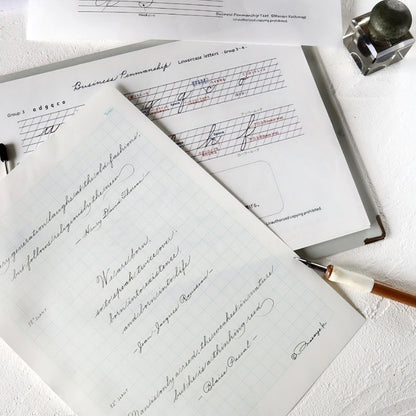 Business Penmanship Text @Nenan Kathmagi
unauthorized copying prohibited.
Business Penmanship
Lowercase letters - Group 3~4
Group 3 a d g q c o
unauthorized copying prohibited.
ery generation laughs at the old fashions,
but follows religiously the new.
- Henry David Thoreau -
We are born,
so to speak, twice over;
born into existence,
and born into life.
- Jean-Jacques Rousseau -
Man is only a reed, the weakest in nature,
but he is a thinking reed.
- Blaise Pascal -